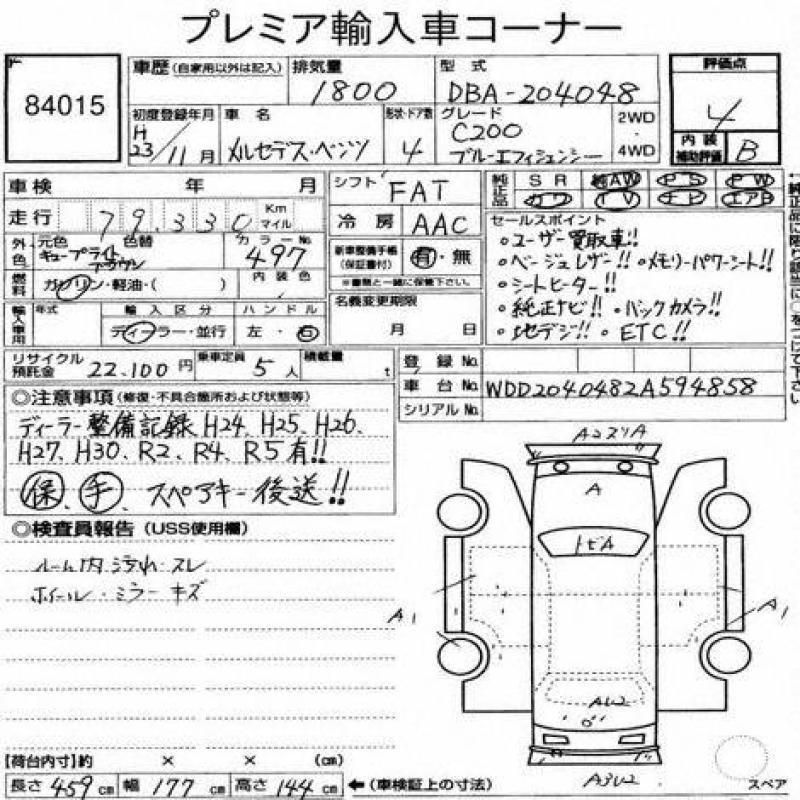 プレミア輸入車コーナー
84015
車歴 (自家用以外は記入) 排気量 1800 型式 DBA-204048 評価点 4
初度登録年月 H23/11月 車名 メルセデス・ベンツ 形状・ドア数 4 グレード C200 ブルーエフィシェンシー 2WD・4WD 内装補助評価 B
車検 年 月 シフト FAT 純正品 SR 純AW PS PW
カワ TV ナビ エアB
走行 79,330 Km マイル 冷房 AAC セールスポイント
外色 元色 キュープライトブラウン 色替 カラーNo. 497 内装色 新車整備手帳(保証書付) 有・無
※書類と一緒に保管下さい。
燃料 ガソリン・軽油・( ) 名義変更期限 月 日
輸入車用 年式 輸入区分 ディーラー・並行 ハンドル 左・右
。ユーザー買取車!!
。ベージュレザー!! 。メモリーパワーシート!!
。シートヒーター!!
。純正ナビ!! 。バックカメラ!!
。地デジ!! 。ETC!!
リサイクル預託金 22,100円 乗車定員 5人 積載量 t
登録No.
車台No. WDD2040482A594858
シリアルNo.
◎注意事項(修復・不具合箇所および状態等)
ディーラー整備記録 H24、H25、H26、
H27、H30、R2、R4、R5有!!
保、手、スペアキー後送!!
◎検査員報告(USS使用欄)
ルーム内汚れ・スレ
ホイール・ミラーキズ
A2スリA
A
トビA
A1
A1
AU2
A3U2
スペア
【荷台内寸】約 × × (cm)
長さ 459cm 幅 177cm 高さ 144cm ←(車検証上の寸法)